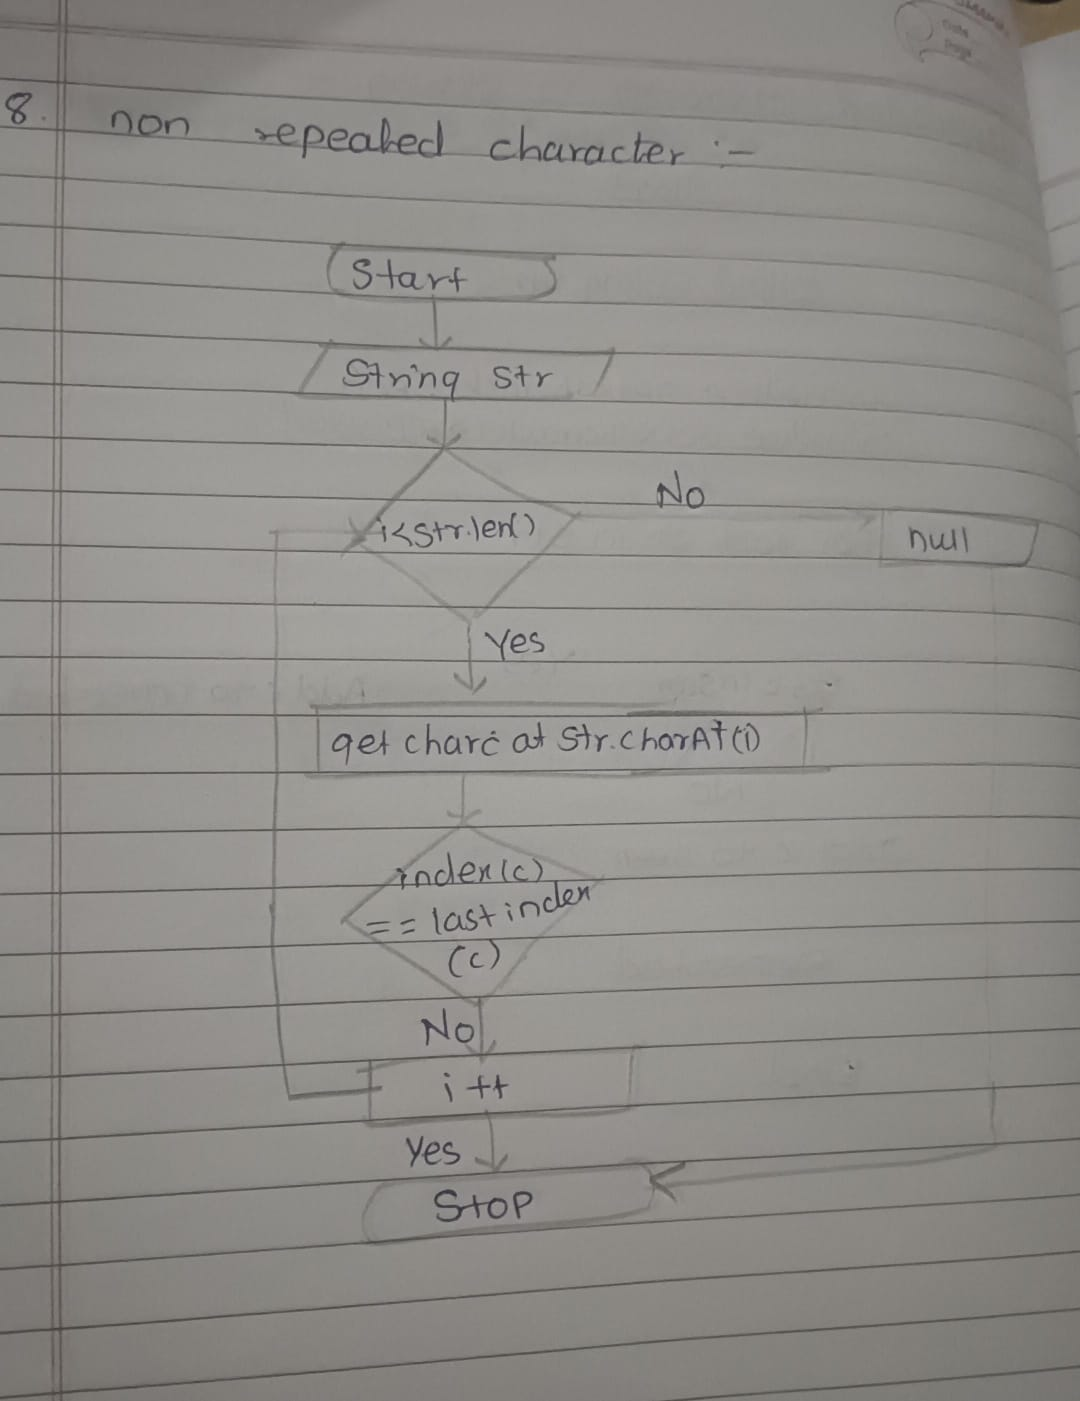 8. non repeated character :-
Start
String str
i<str.len()
No
null
Yes
get char c at str.charAt(i)
index(c)
== last index
(c)
No
i++
Yes
Stop